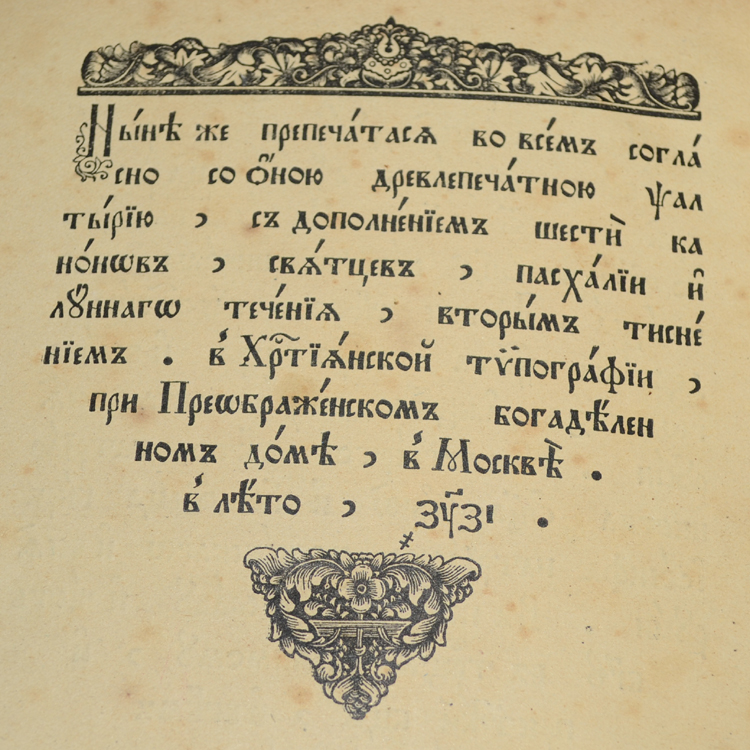 Ны́нѣ же препеча́тасѧ во всє́мъ согла́
сно со ѻ҆́ною древлепеча́тною ѱал
ты́рїю , съ дополне́нїемъ шестѝ ка
но́нѡвъ , свѧ́тцевъ , пасха́лїи и҆
лꙋ́ннагѡ тече́нїѧ , вторы́мъ тисне́
нїемъ . в̾ Хрⷭ҇тїѧ́нской тѵ̈погра́фїи ,
при Преѡбраже́нскомъ богадѣ́лен
номъ до́мѣ , в̾ Москвѣ̀ .
в̾ лѣ́то , ҂зу҃зі .